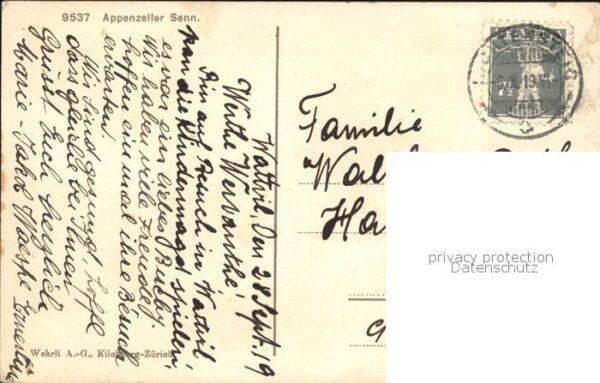 9537 Appenzeller Senn.
Wattwil, Den 28 Sept. 19
Werthe
Bin auf Besuch in Wattwil
kan die Kindermagd spielen,
es war ein liebes Buchy.
Wir haben viele Freude,
hoffen einmal ihre Besuch
erwarten.
Wir sind gesund hoffe
dasgleiche bei Ihnen
Grüsst Euch herzlich
Marie - Jakob Ernestine
Familie
Wal
Ha
Wehrli A.-G., Kilchberg-Zürich
privacy protection
Datenschutz